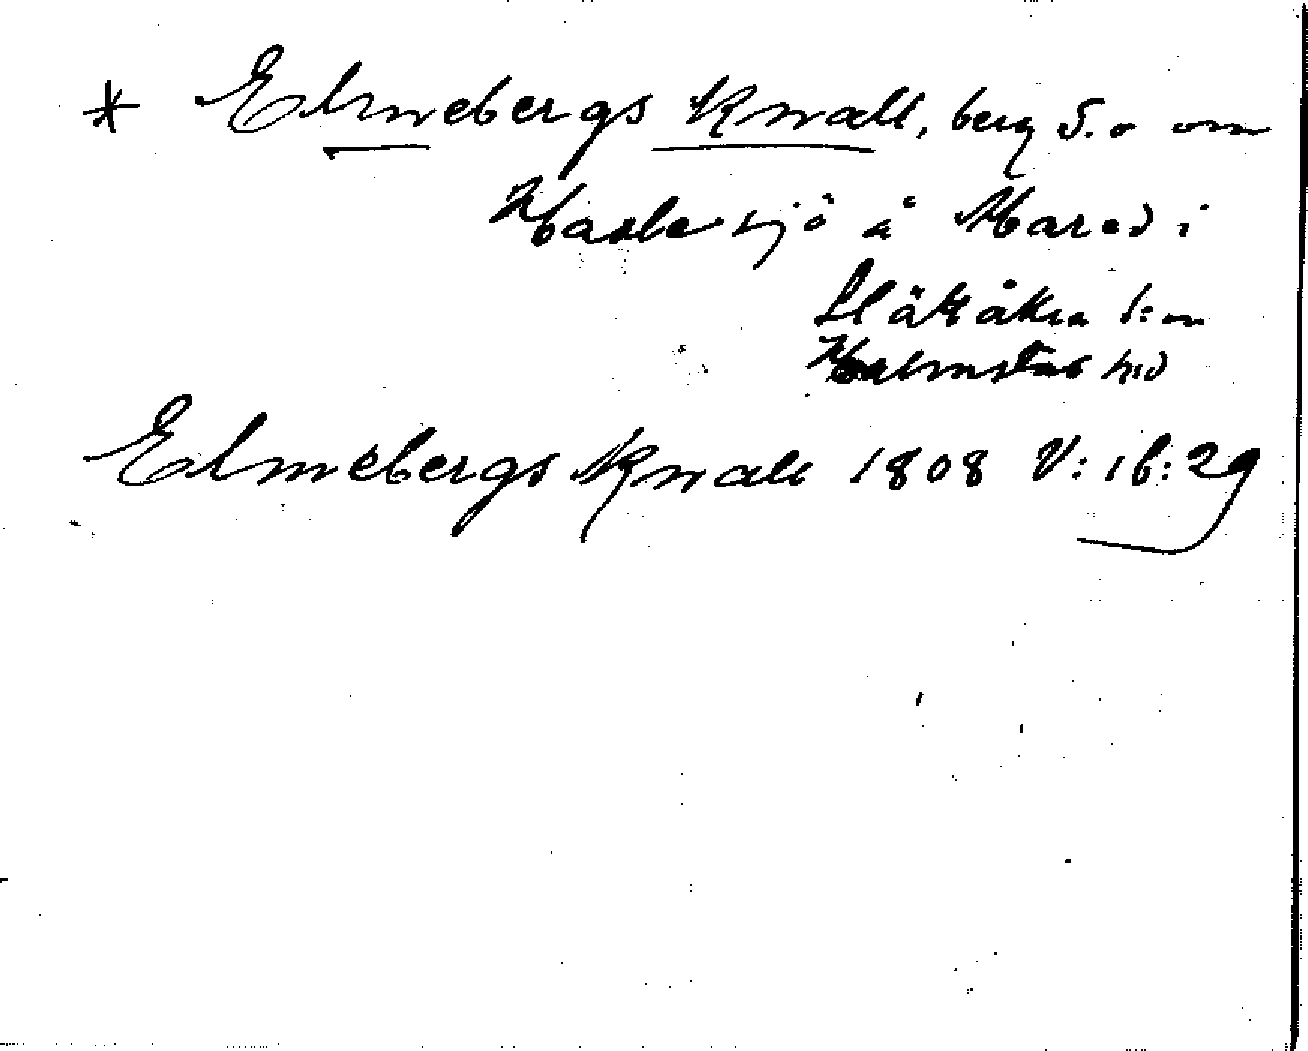 * Elmebergs Knall, berg S.o om
sjö å Mared i
Slättåkra s:n
Halmstad hd
Elmebergs Knall 1808 V: 16: 29